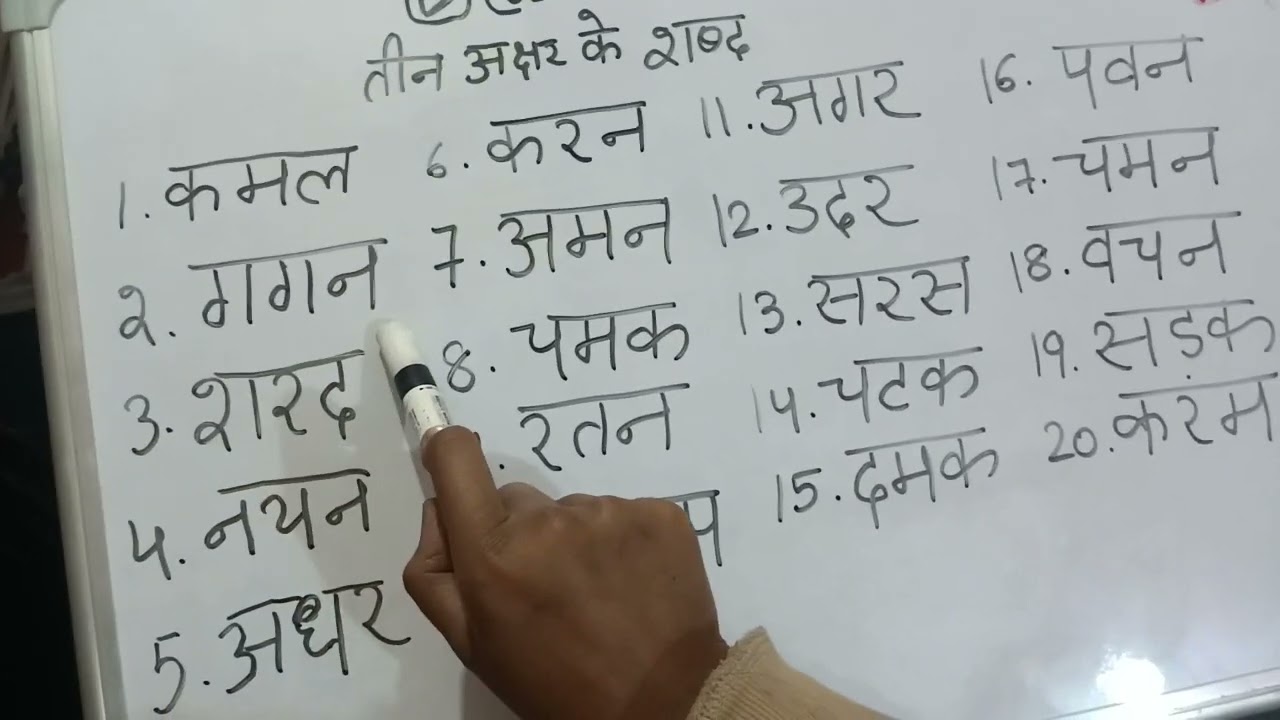 तीन अक्षर के शब्द
1. कमल
2. गगन
3. शरद
4. नयन
5. अधर
6. करन
7. अमन
8. चमक
. रतन
11. अगर
12. उदर
13. सरस
14. चटक
15. दमक
16. पवन
17. चमन
18. वचन
19. सड़क
20. करम